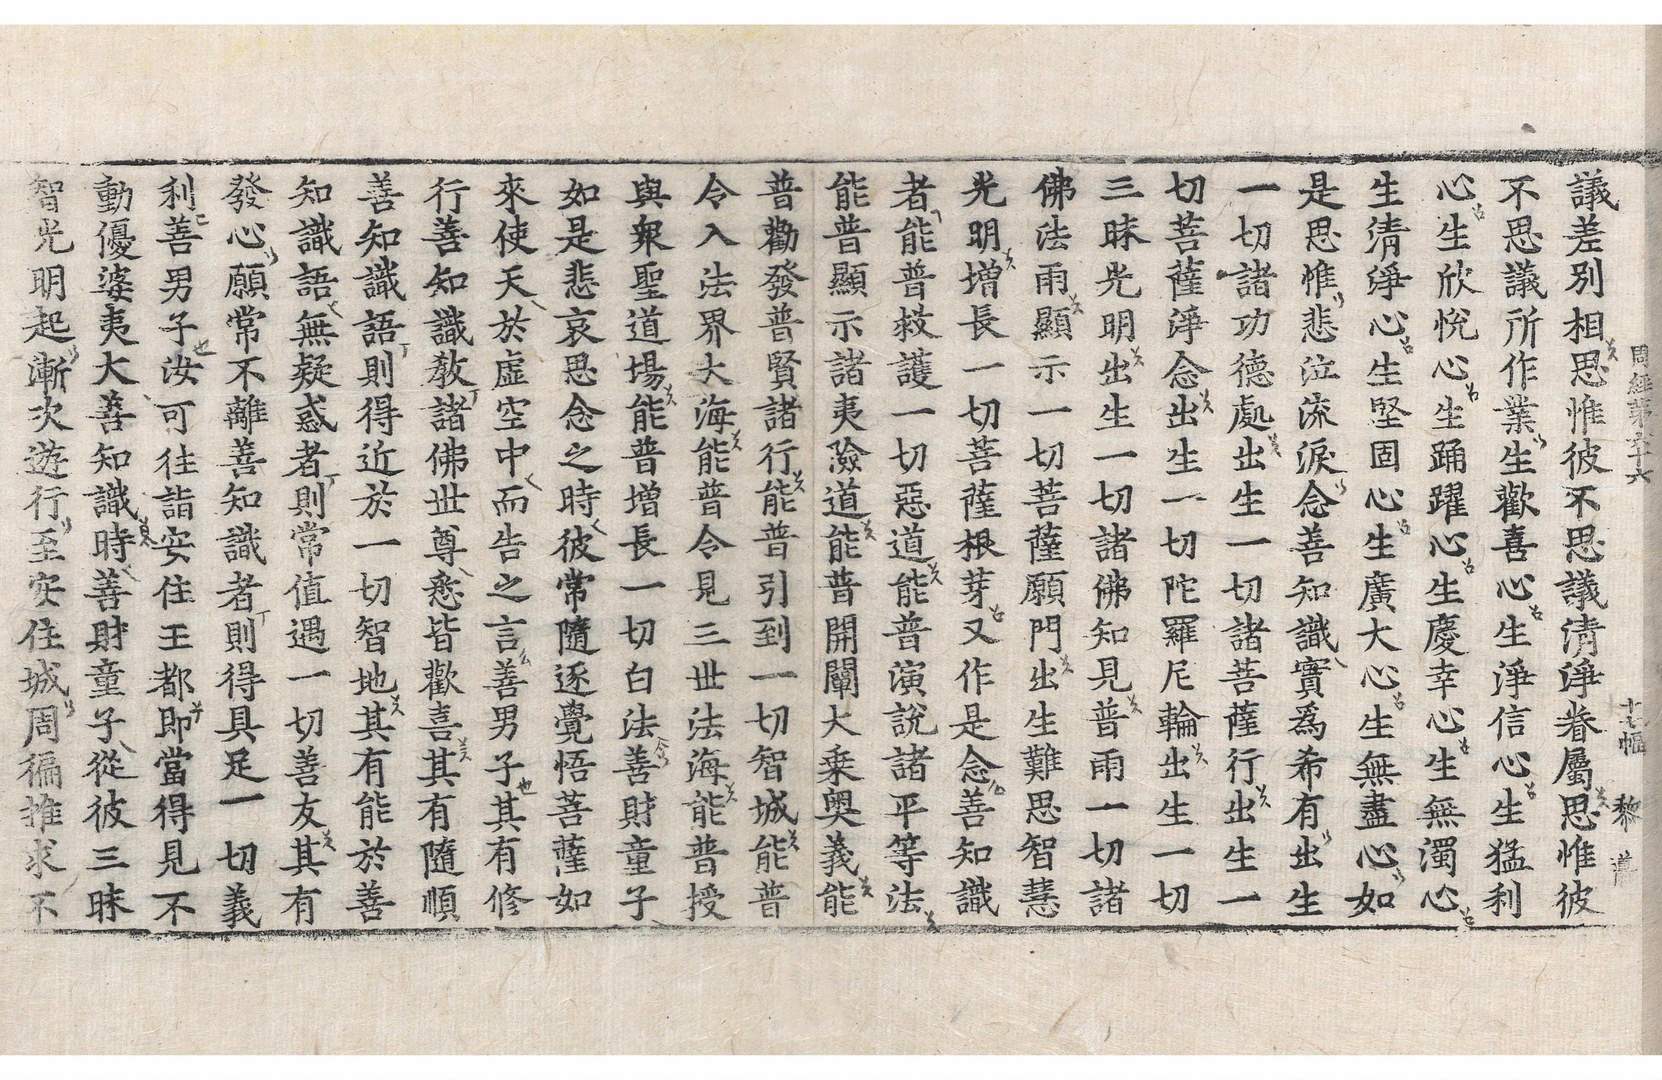 周經第六十六 十七幅 黎
議差別相思惟彼不思議清淨眷屬思惟彼
不思議所作業生歡喜心生淨信心生猛利
心生欣悅心生踊躍心生慶幸心生無濁心
生清淨心生堅固心生廣大心生無盡心如
是思惟悲泣流淚念善知識實爲希有出生
一切諸功德處出生一切諸菩薩行出生一
切菩薩淨念出生一切陀羅尼輪出生一切
三昧光明出生一切諸佛知見普雨一切諸
佛法雨顯示一切菩薩願門出生難思智慧
光明增長一切菩薩根芽又作是念善知識
者能普救護一切惡道能普演說諸平等法
能普顯示諸夷險道能普開闡大乗奧義能
普勸發普賢諸行能普引到一切智城能普
令入法界大海能普令見三世法海能普授
與衆聖道場能普增長一切白法善財童子
如是悲哀思念之時彼常隨逐覺悟菩薩如
來使天於虛空中而告之言善男子其有修
行善知識教諸佛世尊悉皆歡喜其有隨順
善知識語則得近於一切智地其有能於善
知識語無疑惑者則常值遇一切善友其有
發心願常不離善知識者則得具足一切義
利善男子汝可往詣安住王都即當得見不
動優婆夷大善知識時善財童子從彼三昧
智光明起漸次遊行至安住城周徧推求不